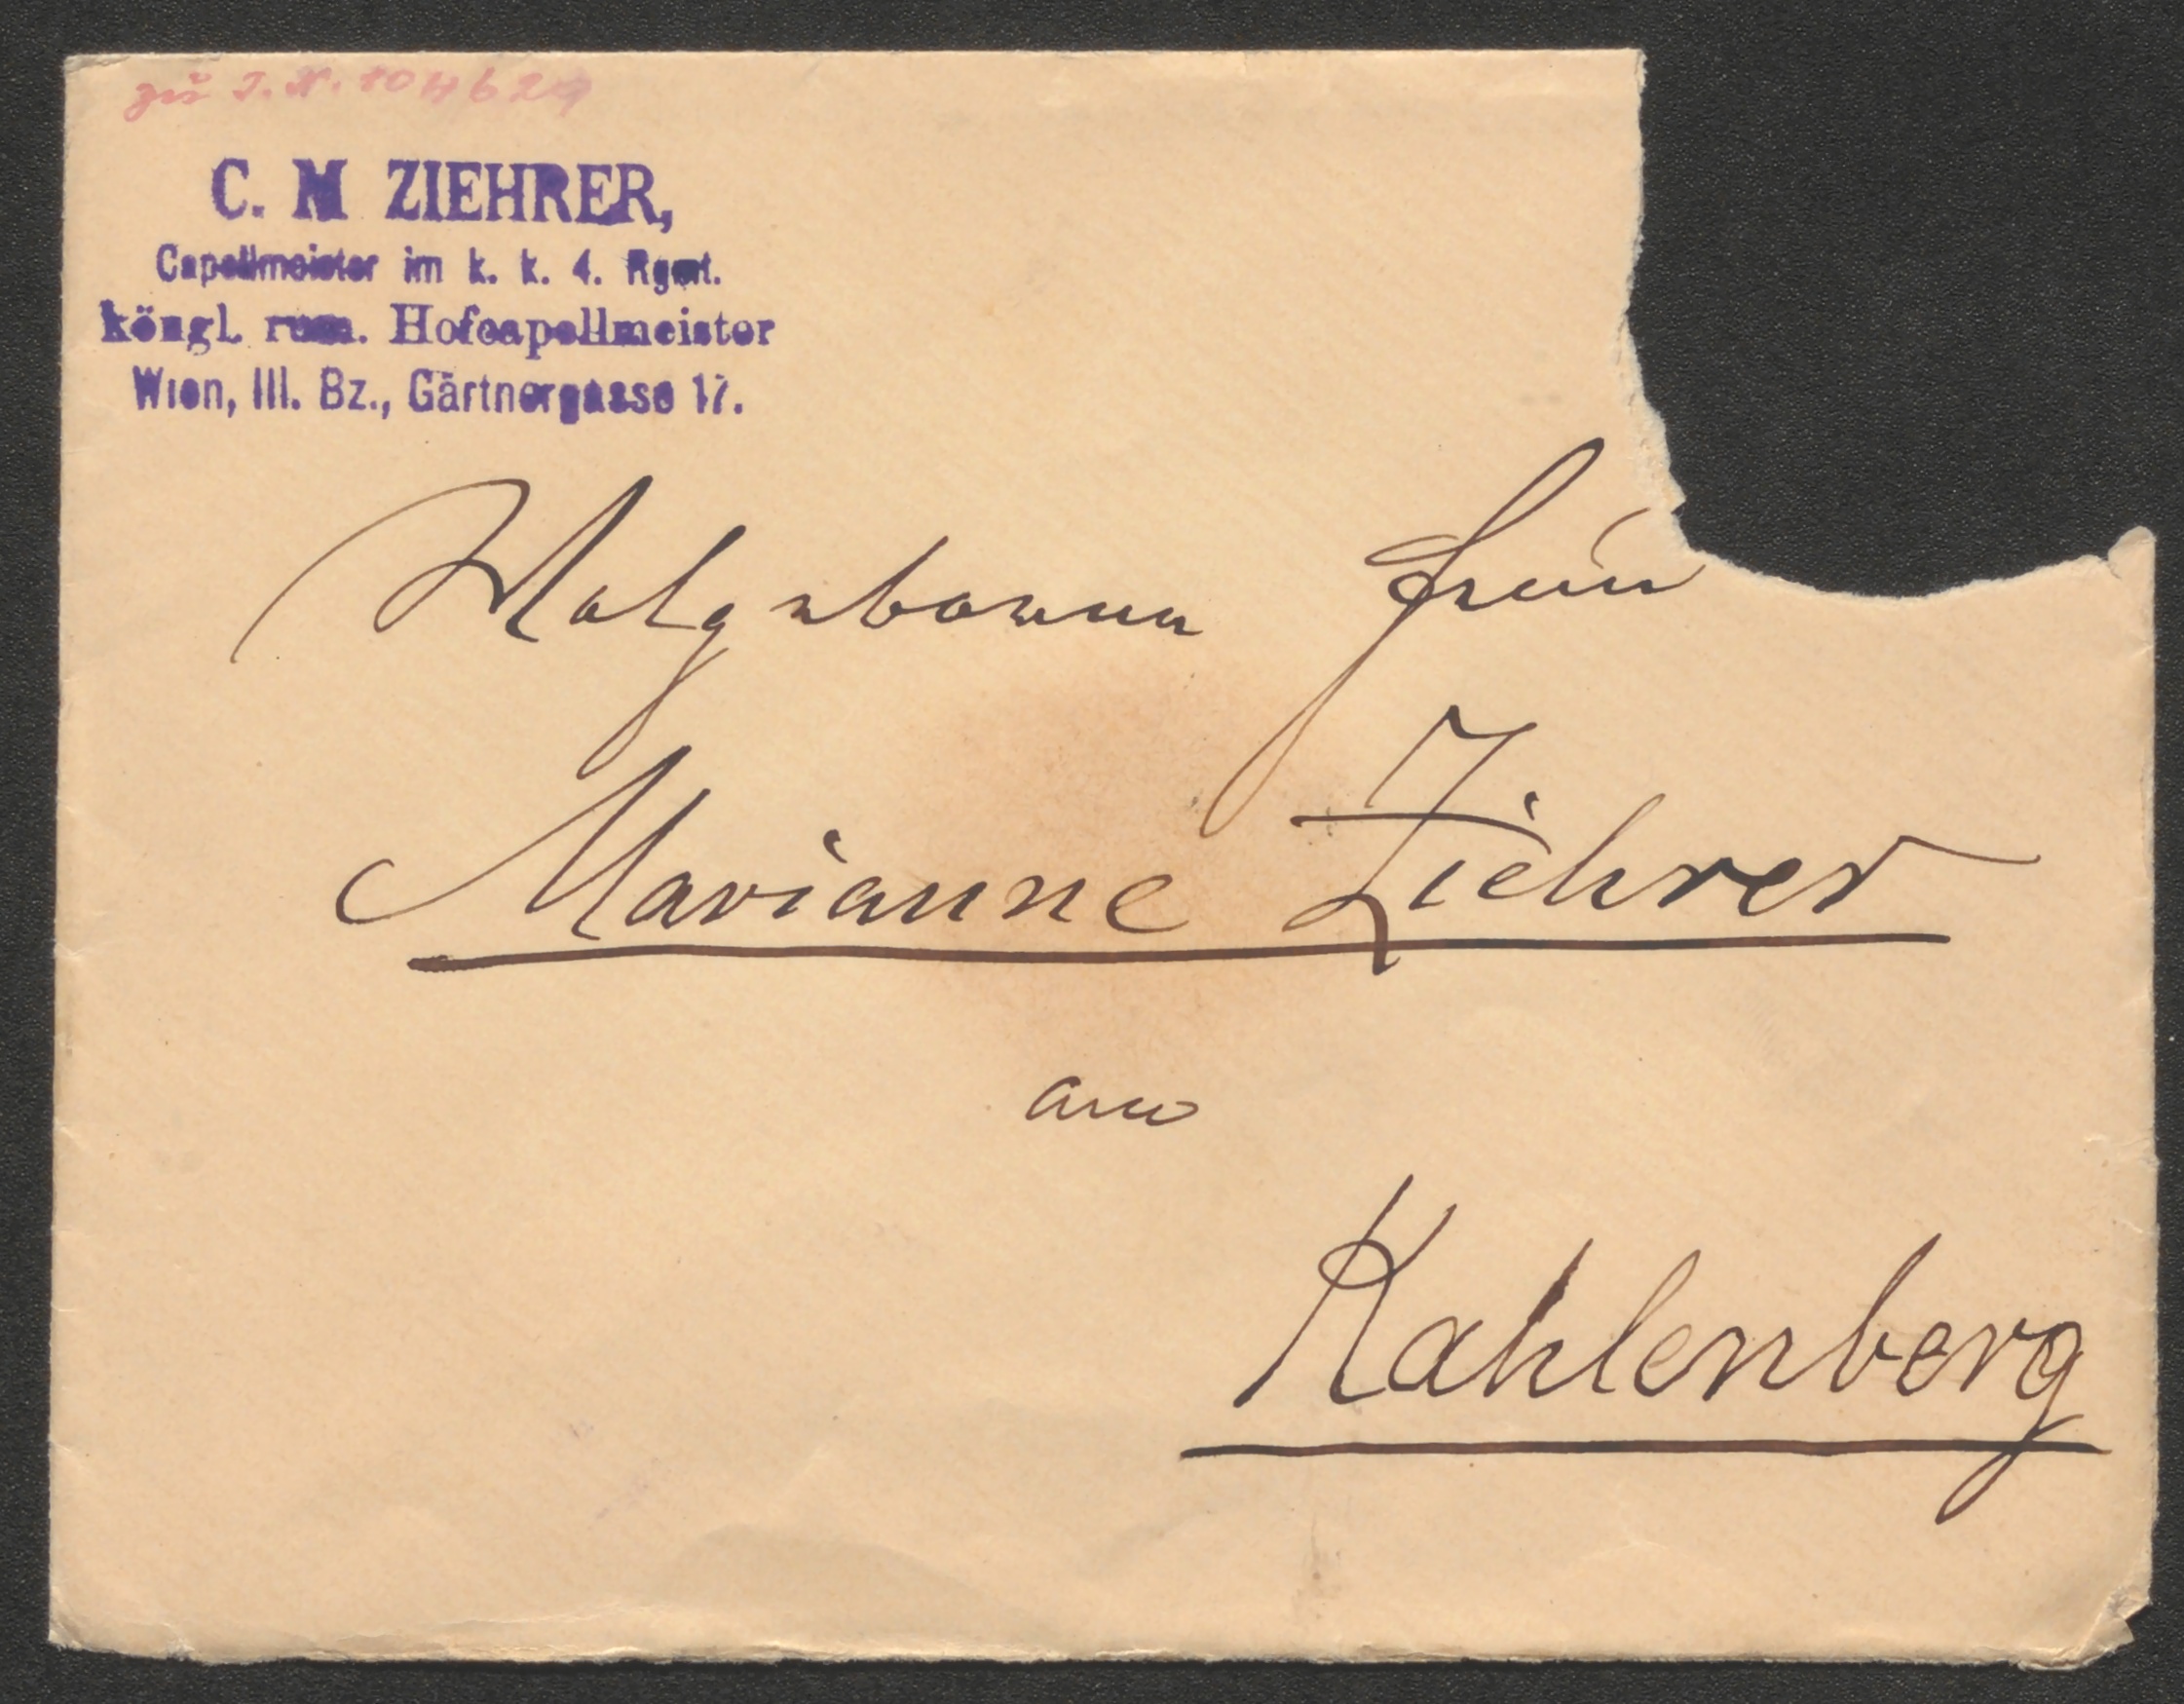 zu I. N. 104629
C. M ZIEHRER,
Capellmeister im k. k. 4. Rgmt.
köngl. rum. Hofcapellmeister
Wien, III. Bz., Gärtnergasse 17.
Wolgeborene Frau
Marianne Ziehrer
am
Kahlenberg